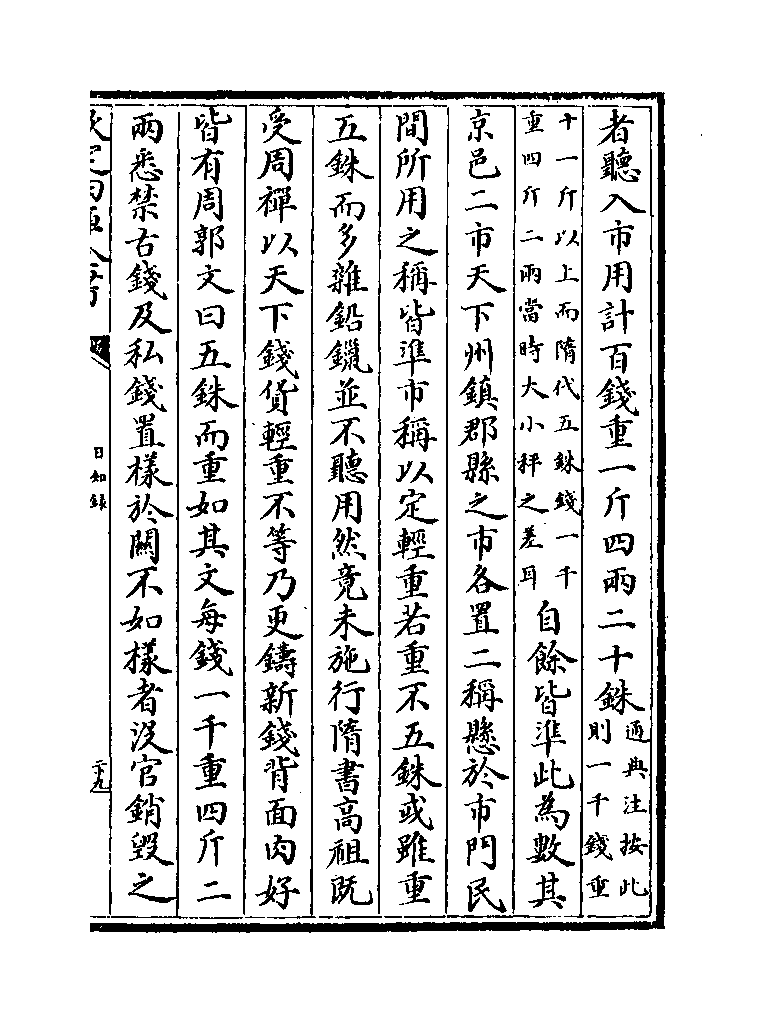 者聽入市用計百錢重一斤四兩二十銖通典注按此
則一千錢重
十一斤以上而隋代五銖錢一千
重四斤二兩當時大小秤之差耳自餘皆準此為數其
京邑二市天下州鎮郡縣之市各置二稱懸於市門民
間所用之稱皆準市稱以定輕重若重不五銖或雖重
五銖而多雜鉛鑞並不聽用然竟未施行隋書高祖既
受周禪以天下錢貨輕重不等乃更鑄新錢背面肉好
皆有周郭文曰五銖而重如其文每錢一千重四斤二
兩悉禁古錢及私錢置樣於關不如樣者沒官銷毀之
日知錄